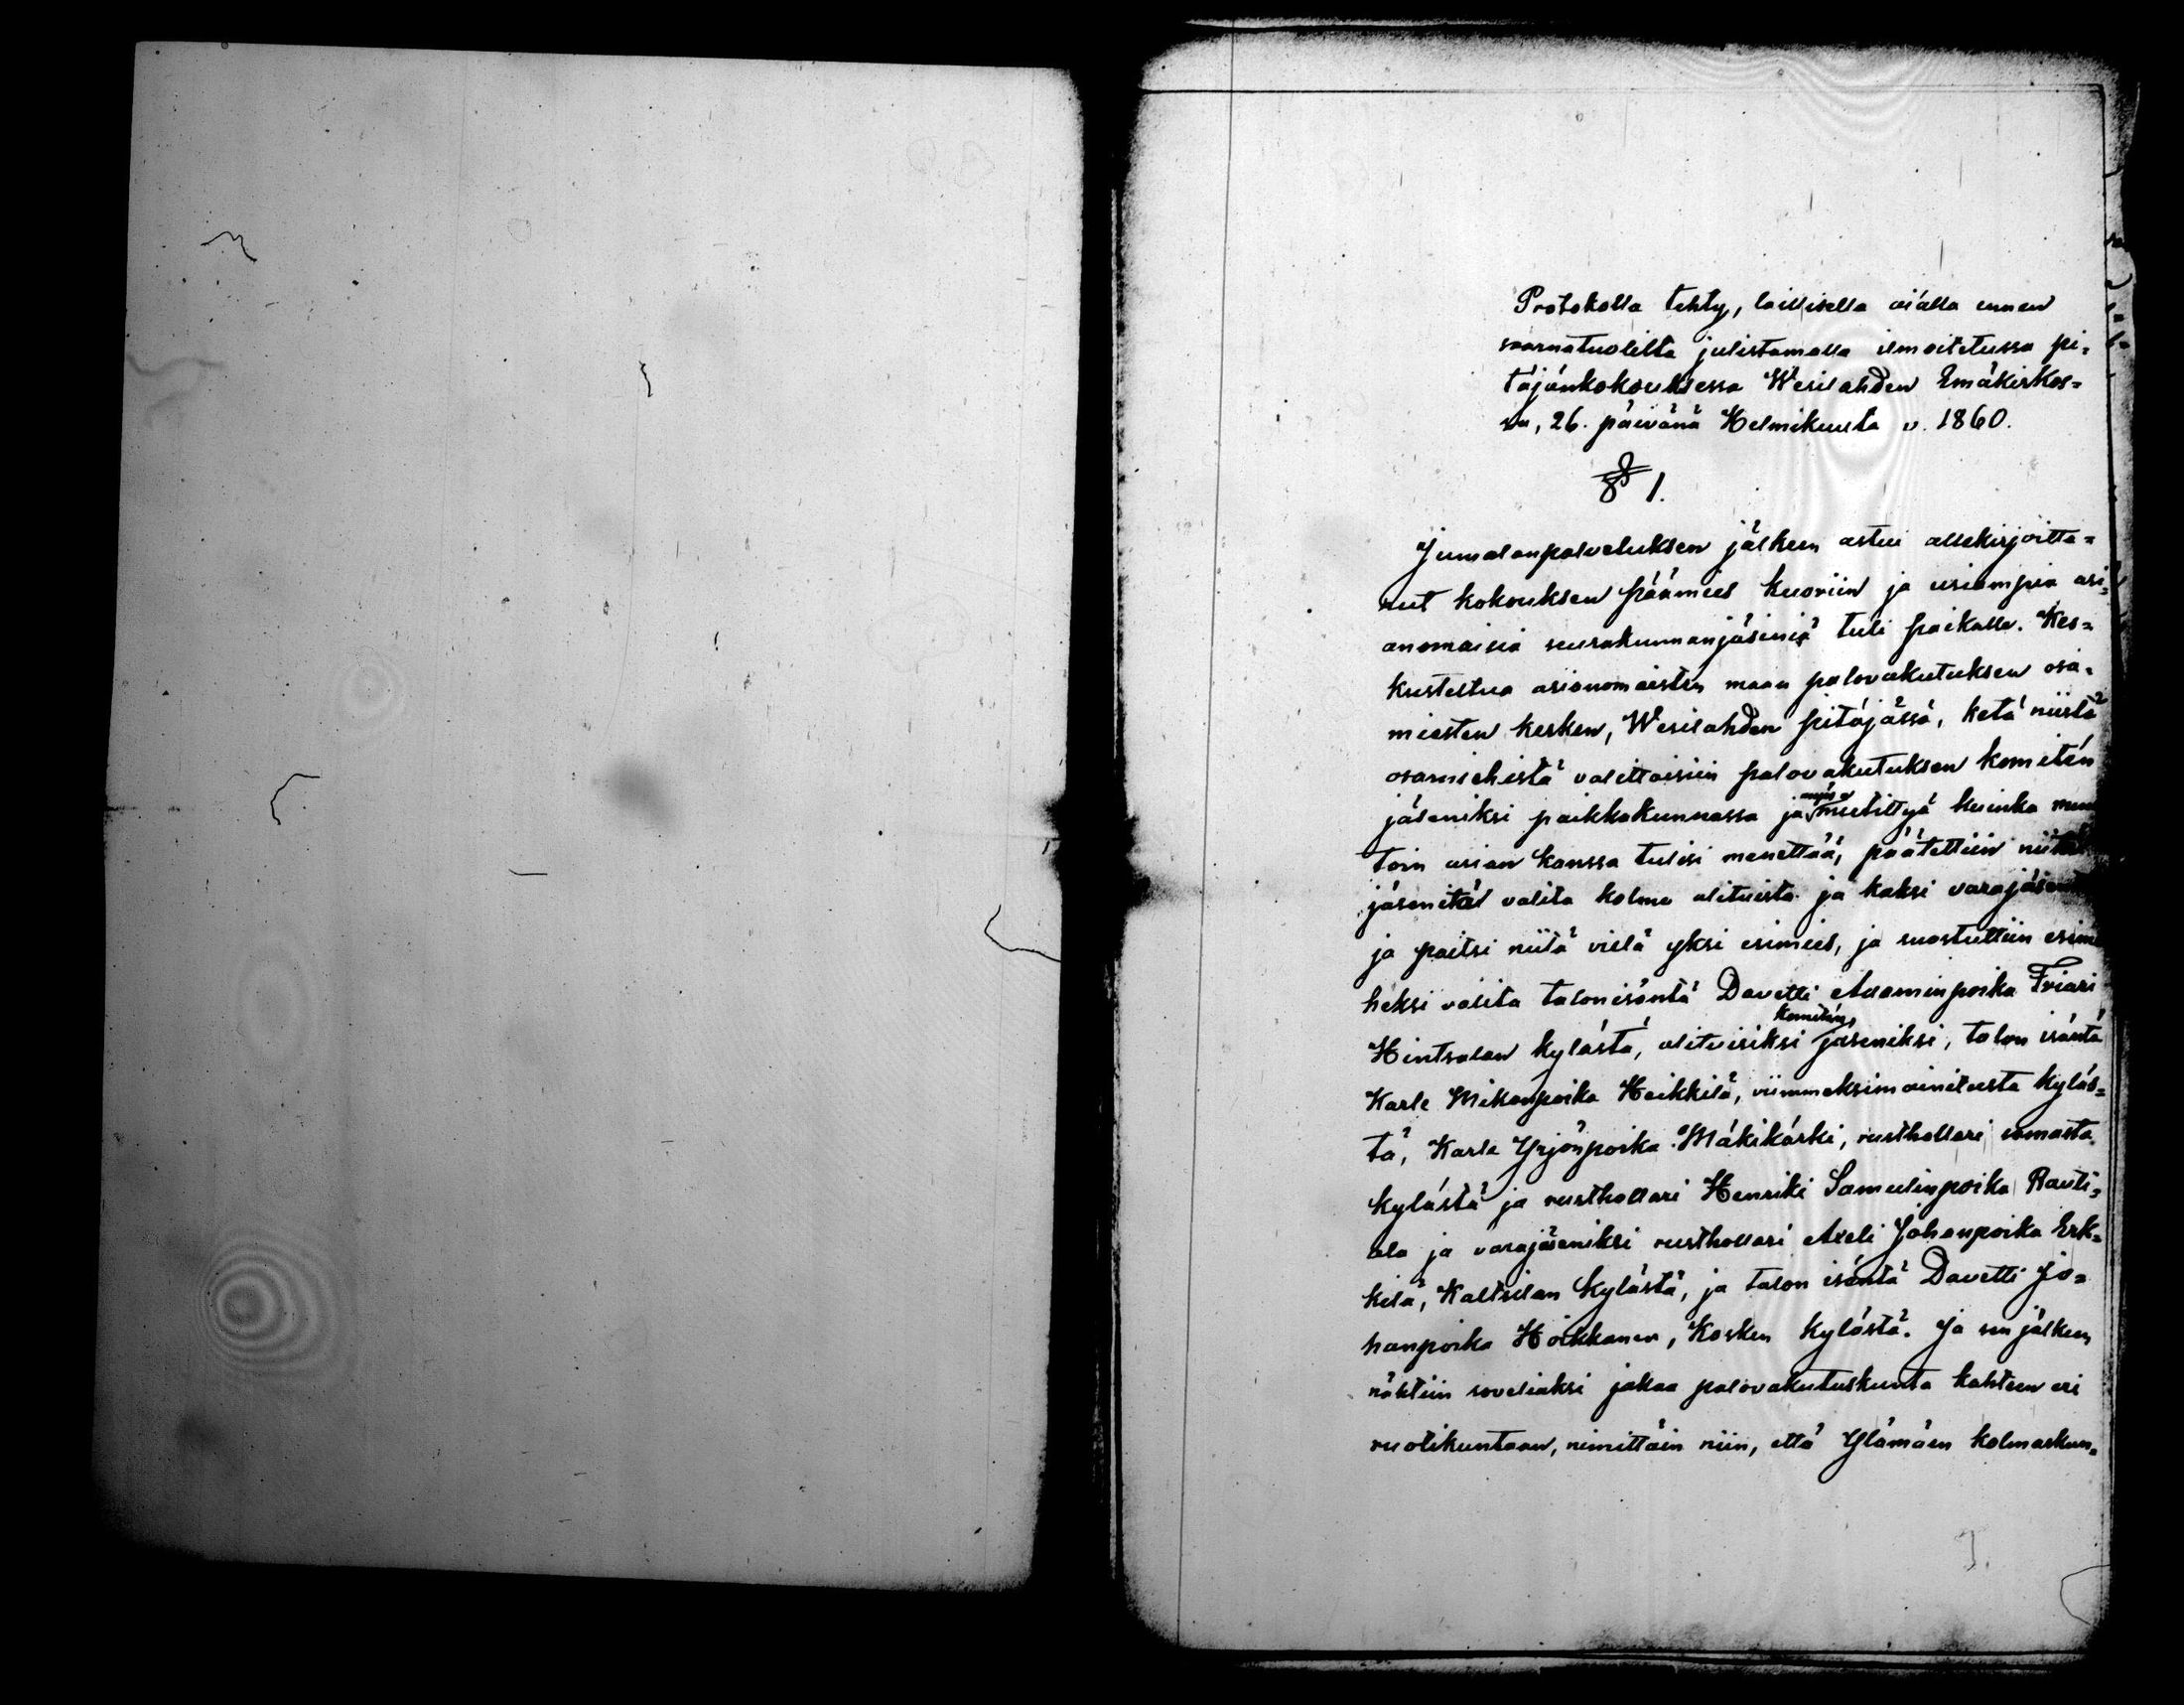 Protokolla tehty, laillisella aialla ennen
saarnatuolilta julistamalla ilmoitetussa pi=
täjänkokouksessa Wesilahden Emäkirkos=
sa, 26. päivänä Helmikuuta v. 1860.
§ 1.
Jumalanpalveluksen jälkeen astui allekirjoitta=
nut kokouksen päämies kuoriin ja usiampia asi=
anomaisia seurakunnanjäseniä tuli paikalle. Kes=
kusteltua asianomaisten maan palovakutuksen osa=
miesten kesken, Wesilahden pitäjässä, ketä niistä
osamiehistä valittaisiin palovakutuksen komitén
jäseniksi paikkakunnassa ja myös mietittyä kuinka muu
toin asian kanssa tulisi menettää, päätettiin niitä
jäsenitä valita kolme alituista ja kaksi varajäsentä
ja paitsi niitä vielä yksi esimies, ja suostuttiin esimi
heksi valita talonisäntä Davetti Adaminpoika Friari
Hintsalan kylästä, alituisiksi komitén jäseniksi, talon isäntä
Karle Mikonpoika Heikkilä, viimmeksimainitusta kyläs=
tä, Karle Yrjönpoika Mäkikärki, rusthollari samasta
kylästä ja rusthollari Henriki Samulinpoika Rauti=
ala ja varajäseniksi rusthollari Axeli Johanpoika Erk=
kilä, Kaltsilan kylästä, ja talon isäntä Davetti Jo=
hanpoika Hoikkanen, Kosken kylästä. Ja sen jälkeen
nähtiin soveliaksi jakaa palovakutuskunta kahteen eri
ruotikuntaan, nimittäin niin, että Ylämäen kolmaskun=
1.